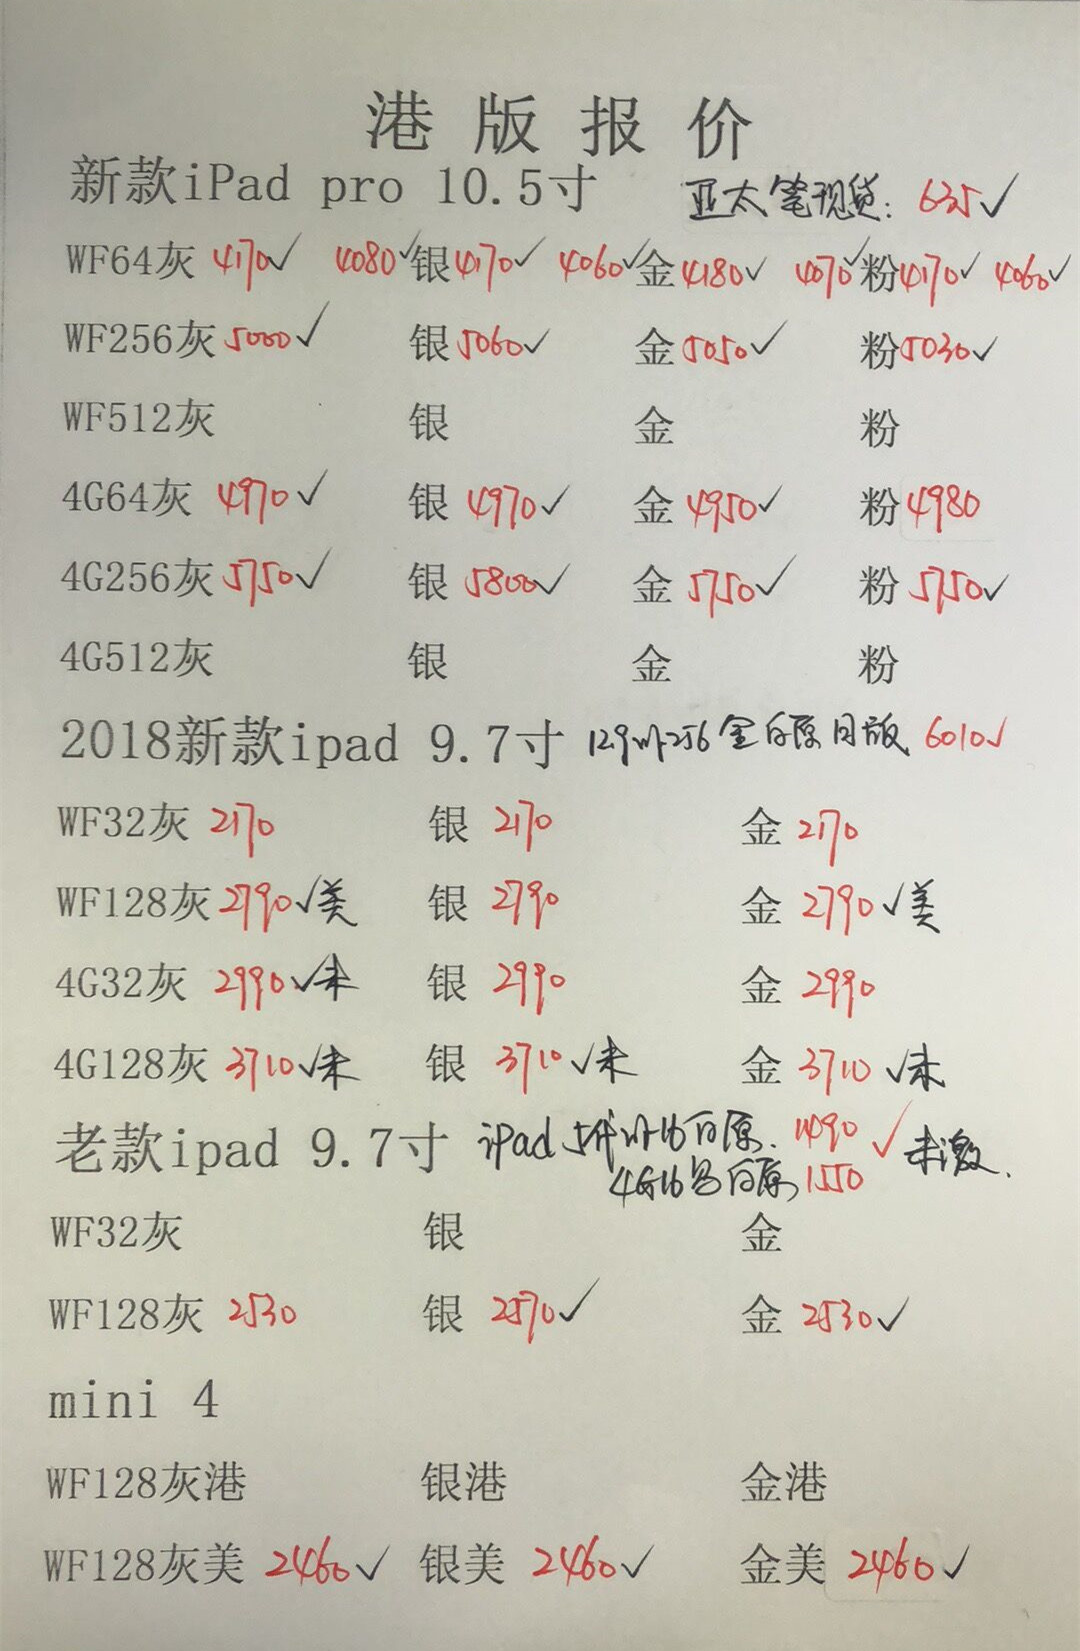 港版报价
新款iPad pro 10.5寸 亚太笔现货: 635✓
WF64灰 4170✓ 4080✓ 银4170✓ 4060✓ 金4180✓ 4070✓ 粉4170✓ 4060✓
WF256灰 5000✓ 银 5060✓ 金 5050✓ 粉5030✓
WF512灰 银 金 粉
4G64灰 4970✓ 银 4970✓ 金 4950✓ 粉 4980
4G256灰 5750✓ 银 5800✓ 金 5750✓ 粉 5750✓
4G512灰 银 金 粉
2018新款ipad 9.7寸 12.9 256 金 白原 日版 6010✓
WF32灰 2170 银 2170 金 2170
WF128灰 2790✓美 银 2790 金 2790✓美
4G32灰 2990✓未 银 2990 金 2990
4G128灰 3710✓未 银 3710✓未 金 3710✓未
老款ipad 9.7寸 iPad 5代 16 白原. 1490 ✓ 未激.
4G16 白原 1550
WF32灰 银 金
WF128灰 2530 银 2570✓ 金 2530✓
mini 4
WF128灰港 银港 金港
WF128灰美 2460✓ 银美 2460✓ 金美 2460✓